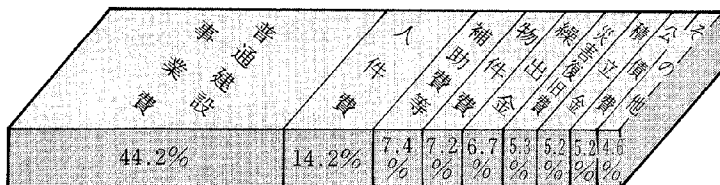 普通建設
事業費
人件費
補助費等
物件費
繰出金
災害復旧費
積立金
公債費
その他
44.2%
14.2%
7.4%
7.2%
6.7%
5.3%
5.2%
5.2%
4.6%